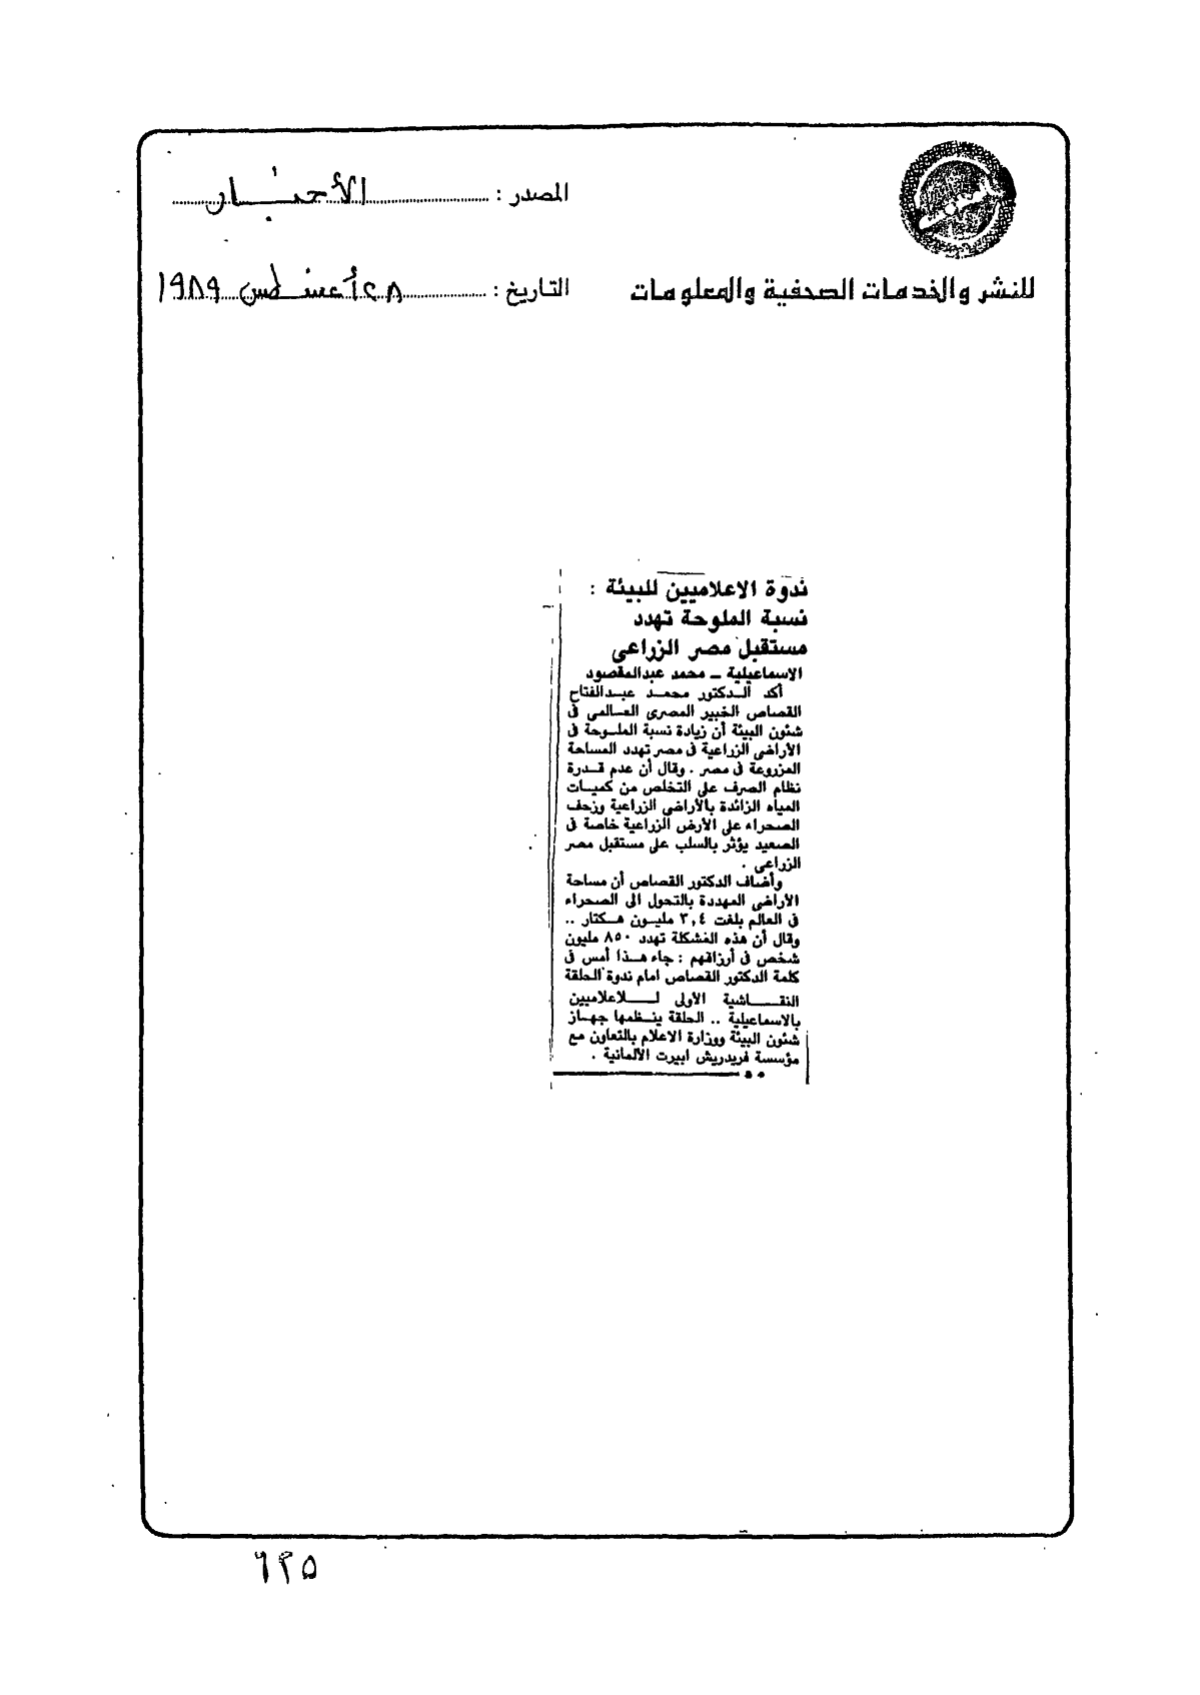 المصدر : الأخبار
للنشر والخدمات الصحفية والمعلومات
التاريخ : ٢٨ أغسطس ١٩٨٩
ندوة الاعلاميين للبيئة :
نسبة الملوحة تهدد
مستقبل مصر الزراعى
الاسماعيلية ــ محمد عبدالمقصود
أكد الدكتور محمد عبدالفتاح
القصاص الخبير المصرى العالمى فى
شئون البيئة أن زيادة نسبة الملوحة فى
الأراضى الزراعية فى مصر تهدد المساحة
المزروعة فى مصر . وقال أن عدم قدرة
نظام الصرف على التخلص من كميات
المياه الزائدة بالأراضى الزراعية وزحف
الصحراء على الأرض الزراعية خاصة فى
الصعيد يؤثر بالسلب على مستقبل مصر
الزراعى .
وأضاف الدكتور القصاص أن مساحة
الأراضى المهددة بالتحول الى الصحراء
فى العالم بلغت ٣,٤ مليون هكتار ..
وقال أن هذه المشكلة تهدد ٨٥٠ مليون
شخص فى أرزاقهم : جاء هذا أمس فى
كلمة الدكتور القصاص امام ندوة الحلقة
النقاشية الأولى للاعلاميين
بالاسماعيلية .. الحلقة ينظمها جهاز
شئون البيئة ووزارة الاعلام بالتعاون مع
مؤسسة فريدريش ايبرت الألمانية .
٦٢٥